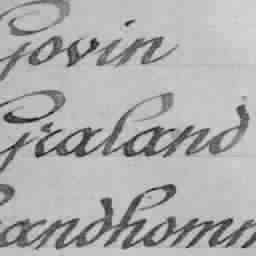 Govin
Graland
andhomm